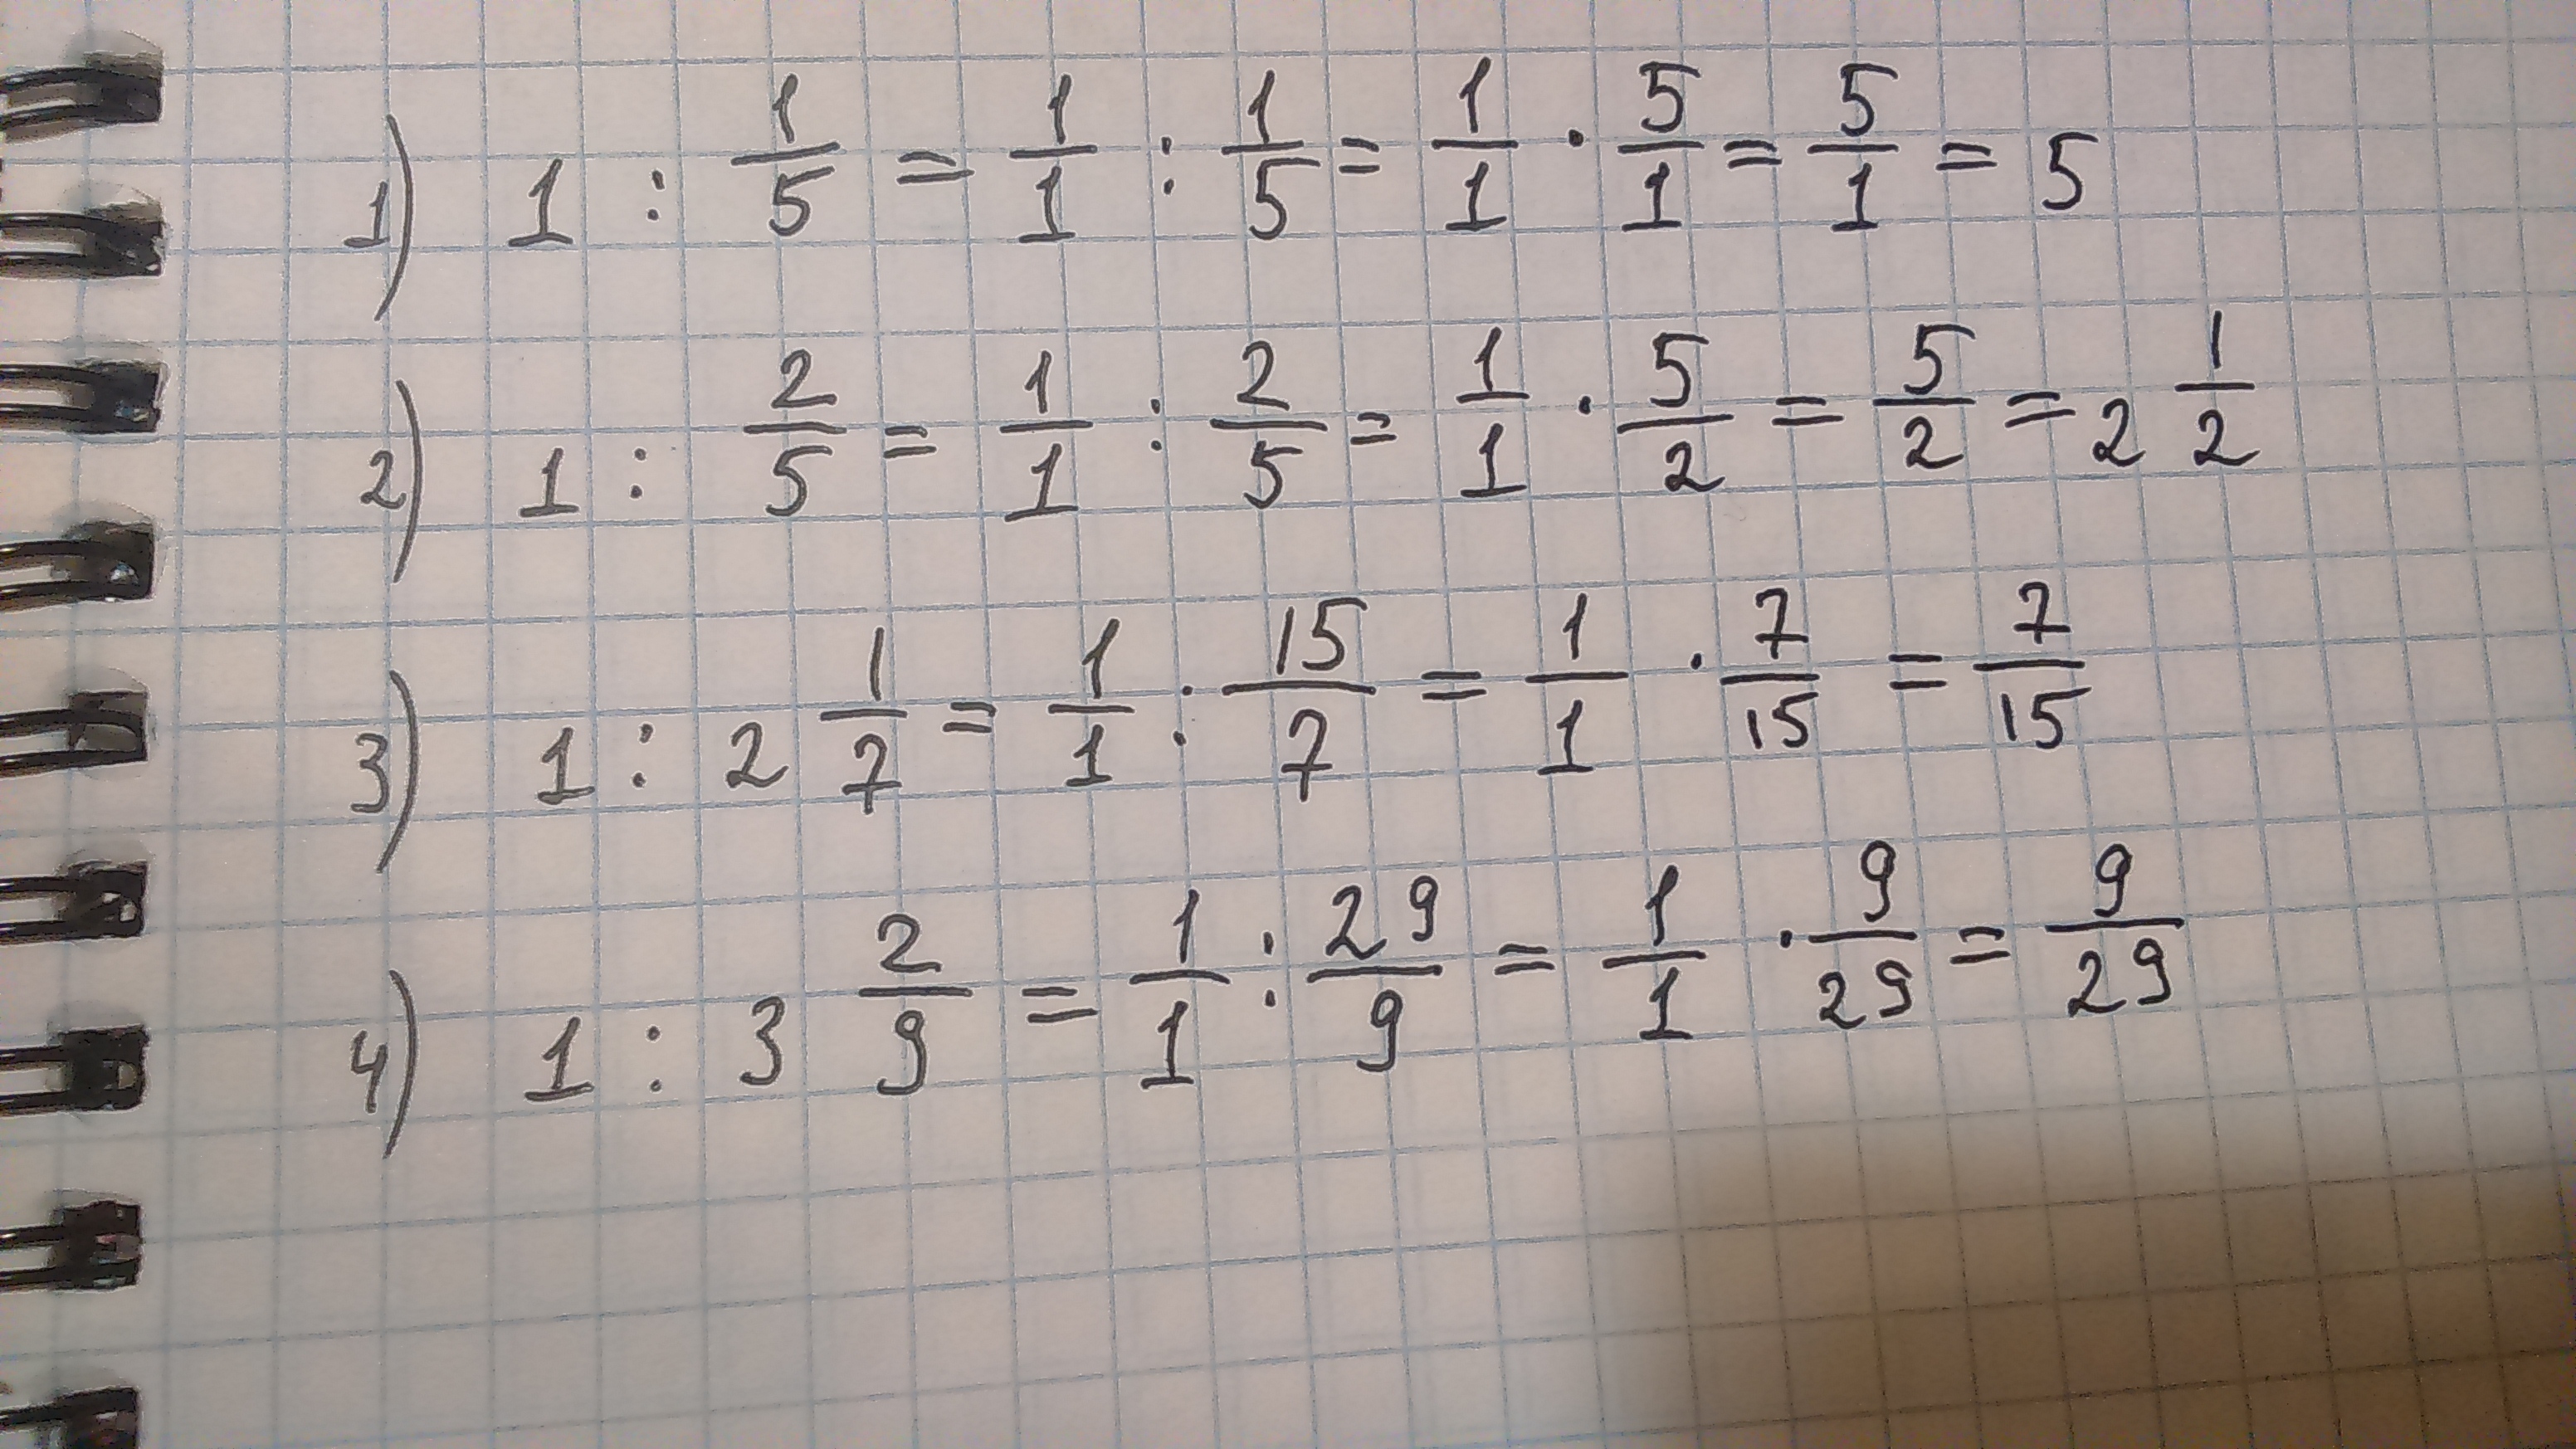 1) 1 : 1/5 = 1/1 : 1/5 = 1/1 · 5/1 = 5/1 = 5
2) 1 : 2/5 = 1/1 : 2/5 = 1/1 · 5/2 = 5/2 = 2 1/2
3) 1 : 2 1/7 = 1/1 : 15/7 = 1/1 · 7/15 = 7/15
4) 1 : 3 2/9 = 1/1 : 29/9 = 1/1 · 9/29 = 9/29